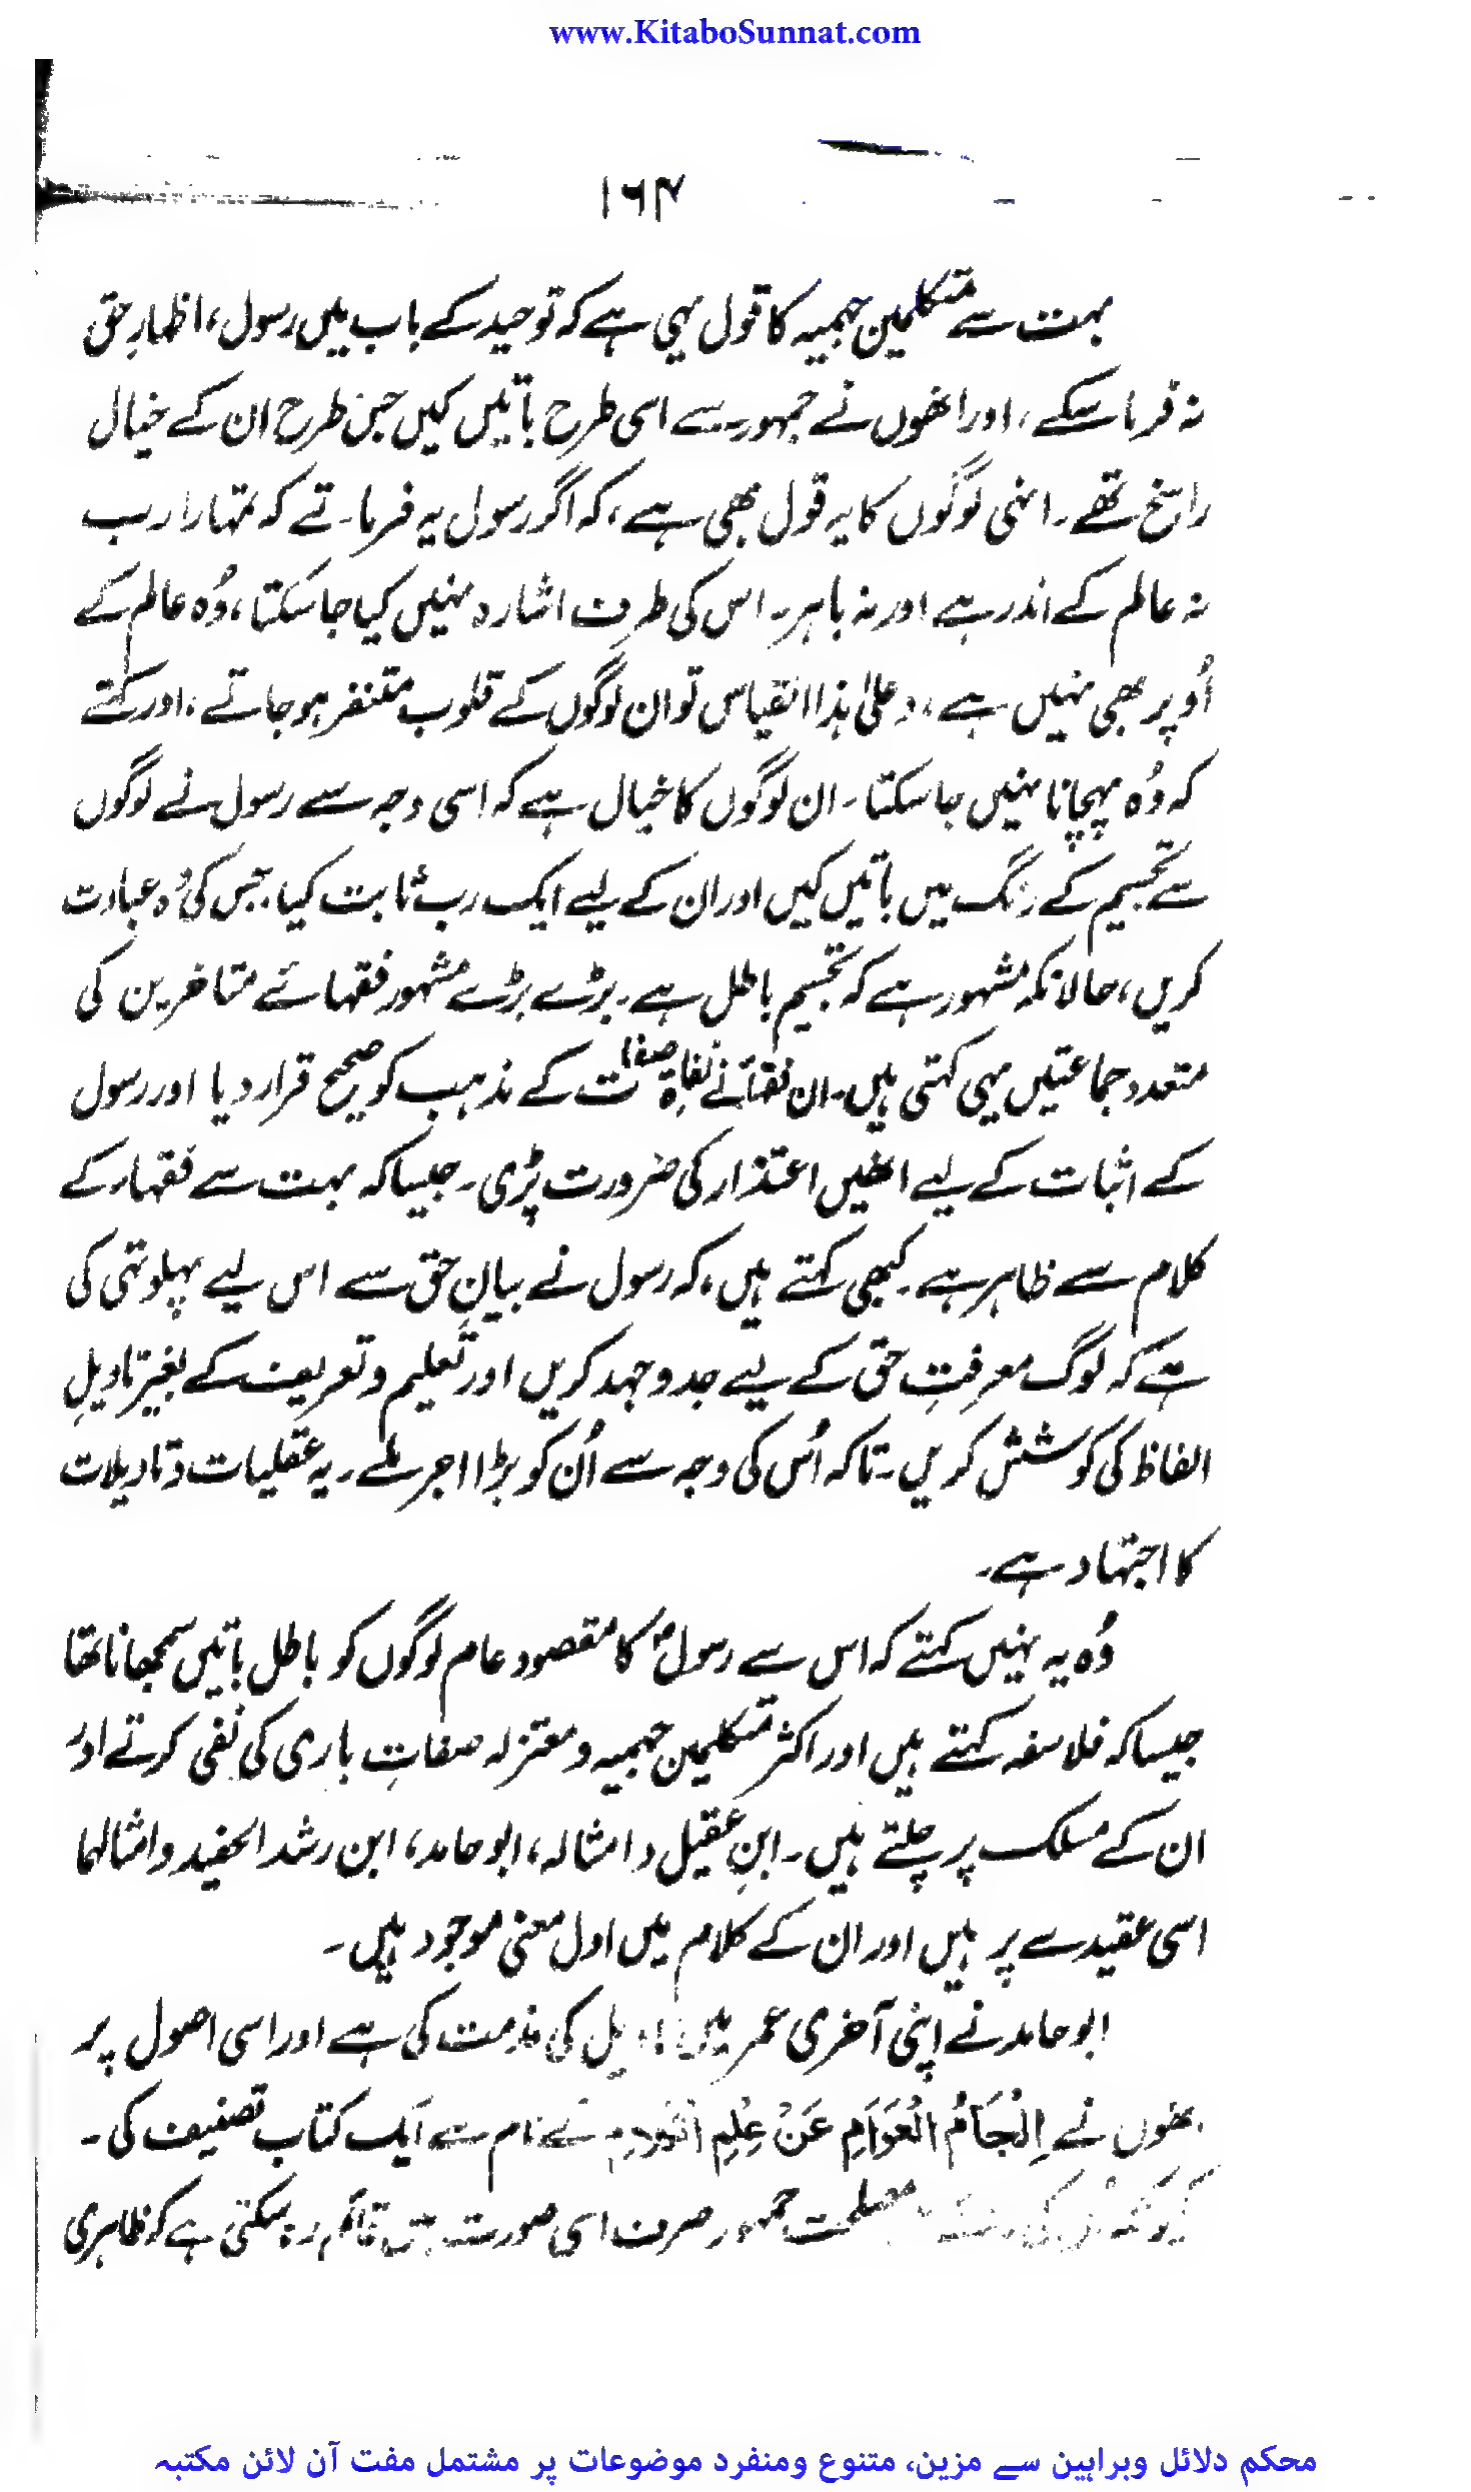 www.KitaboSunnat.com
۱۶۴
بہت سے متکلمین جہمیہ کا قول یہی ہے کہ توحید کے باب میں رسول، اظہارِ حق
نہ فرما سکے، اور انھوں نے جمہور سے اسی طرح باتیں کیں جس طرح ان کے خیال
راسخ تھے۔ انہی لوگوں کا یہ قول بھی ہے، کہ اگر رسول یہ فرماتے کہ تمہارا رب
نہ عالم کے اندر ہے اور نہ باہر۔ اس کی طرف اشارہ نہیں کیا جا سکتا، وُہ عالم کے
اُوپر بھی نہیں ہے، وعلیٰ ہذا القیاس تو ان لوگوں کے قلوب متنفر ہو جاتے، اور کہتے
کہ وُہ پہچانا نہیں جا سکتا۔ ان لوگوں کا خیال ہے کہ اسی وجہ سے رسول نے لوگوں
سے تجسیم کے رنگ میں باتیں کیں اور ان کے لیے ایک رب ثابت کیا، جس کی وُہ عبادت
کریں، حالانکہ مشہور ہے کہ تجسیم باطل ہے۔ بڑے بڑے مشہور فقہائے متاخرین کی
متعدد جماعتیں یہی کہتی ہیں۔ ان فقہا نے نُفاۃِ صفات کے مذہب کو صحیح قرار دیا اور رسول
کے اثبات کے لیے انھیں اعتذار کی ضرورت پڑی۔ جیسا کہ بہت سے فقہاء کے
کلام سے ظاہر ہے۔ کبھی کہتے ہیں، کہ رسول نے بیانِ حق سے اس لیے پہلوتہی کی
ہے کہ لوگ معرفتِ حق کے لیے جد و جہد کریں اور تعلیم و تعریف کے بغیر تاویلِ
الفاظ کی کوشش کریں۔ تاکہ اُس کی وجہ سے اُن کو بڑا اجر ملے۔ یہ عقلیات و تاویلات
کا اجتہاد ہے۔
وُہ یہ نہیں کہتے کہ اس سے رسولؐ کا مقصود عام لوگوں کو باطل باتیں سمجھانا تھا
جیسا کہ فلاسفہ کہتے ہیں اور اکثر متکلمین جہمیہ و معتزلہ صفاتِ باری کی نفی کرتے اور
ان کے مسلک پر چلتے ہیں۔ ابنِ عقیل و امثالہ، ابو حامد، ابن رشد الحفید و امثالہما
اسی عقیدے پر ہیں اور ان کے کلام میں اول معنی موجود ہیں۔
ابو حامد نے اپنی آخری عمر میں تاویل کی مذمت کی ہے اور اسی اصول پر
انھوں نے اِلْجَامُ الْعَوَامِ عَنْ عِلْمِ الْکَلَامِ کے نام سے ایک کتاب تصنیف کی۔
مصلحت جمہور صرف اسی صورت میں قائم رہ سکتی ہے کہ ظاہری
محکم دلائل وبراہین سے مزین، متنوع ومنفرد موضوعات پر مشتمل مفت آن لائن مکتبہ